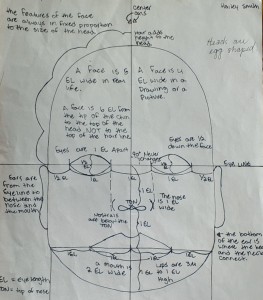 the features of the face
are always in fixed proportion
to the side of the head.
center
axis
Hailey Smith
Hair adds
height to the
head.
Head an
egg shaped
A face is 5
EL wide in real
life.
A face is 4
EL wide in a
Drawing or a
Picture.
A face is 6 EL from
the tip of the chin
to the top of the
head NOT to the
top of the hair line.
Eyes are 1 EL Apart
Eyes are 1/2
down the face
90° Never
changes
Eye line
Ears are
from the
Eyeline to
between the
nose and
the mouth
1/2 EL
1 EL
1 EL
1 EL
1/2 EL
1 EL
The nose
is 1 EL
wide
TON
Nostrils
are below
the TON
1 EL
a mouth is
2 EL wide
1 EL
to 1 EL
High
lips are 3/4
* the bottom
of the ear is
where the head
and the neck
connect.
EL = eye length
TON = top of nose